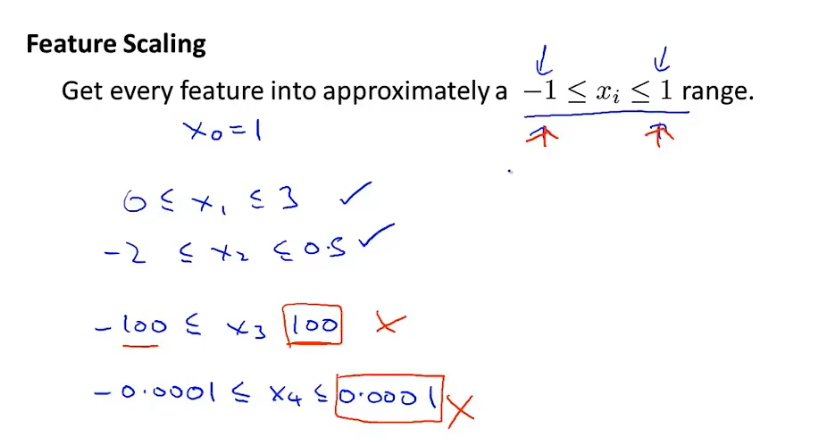 Feature Scaling
Get every feature into approximately a -1 ≤ xᵢ ≤ 1 range.
x₀ = 1
0 ≤ x₁ ≤ 3 ✓
-2 ≤ x₂ ≤ 0.5 ✓
-100 ≤ x₃ 100 ×
-0.0001 ≤ x₄ ≤ 0.0001 ×